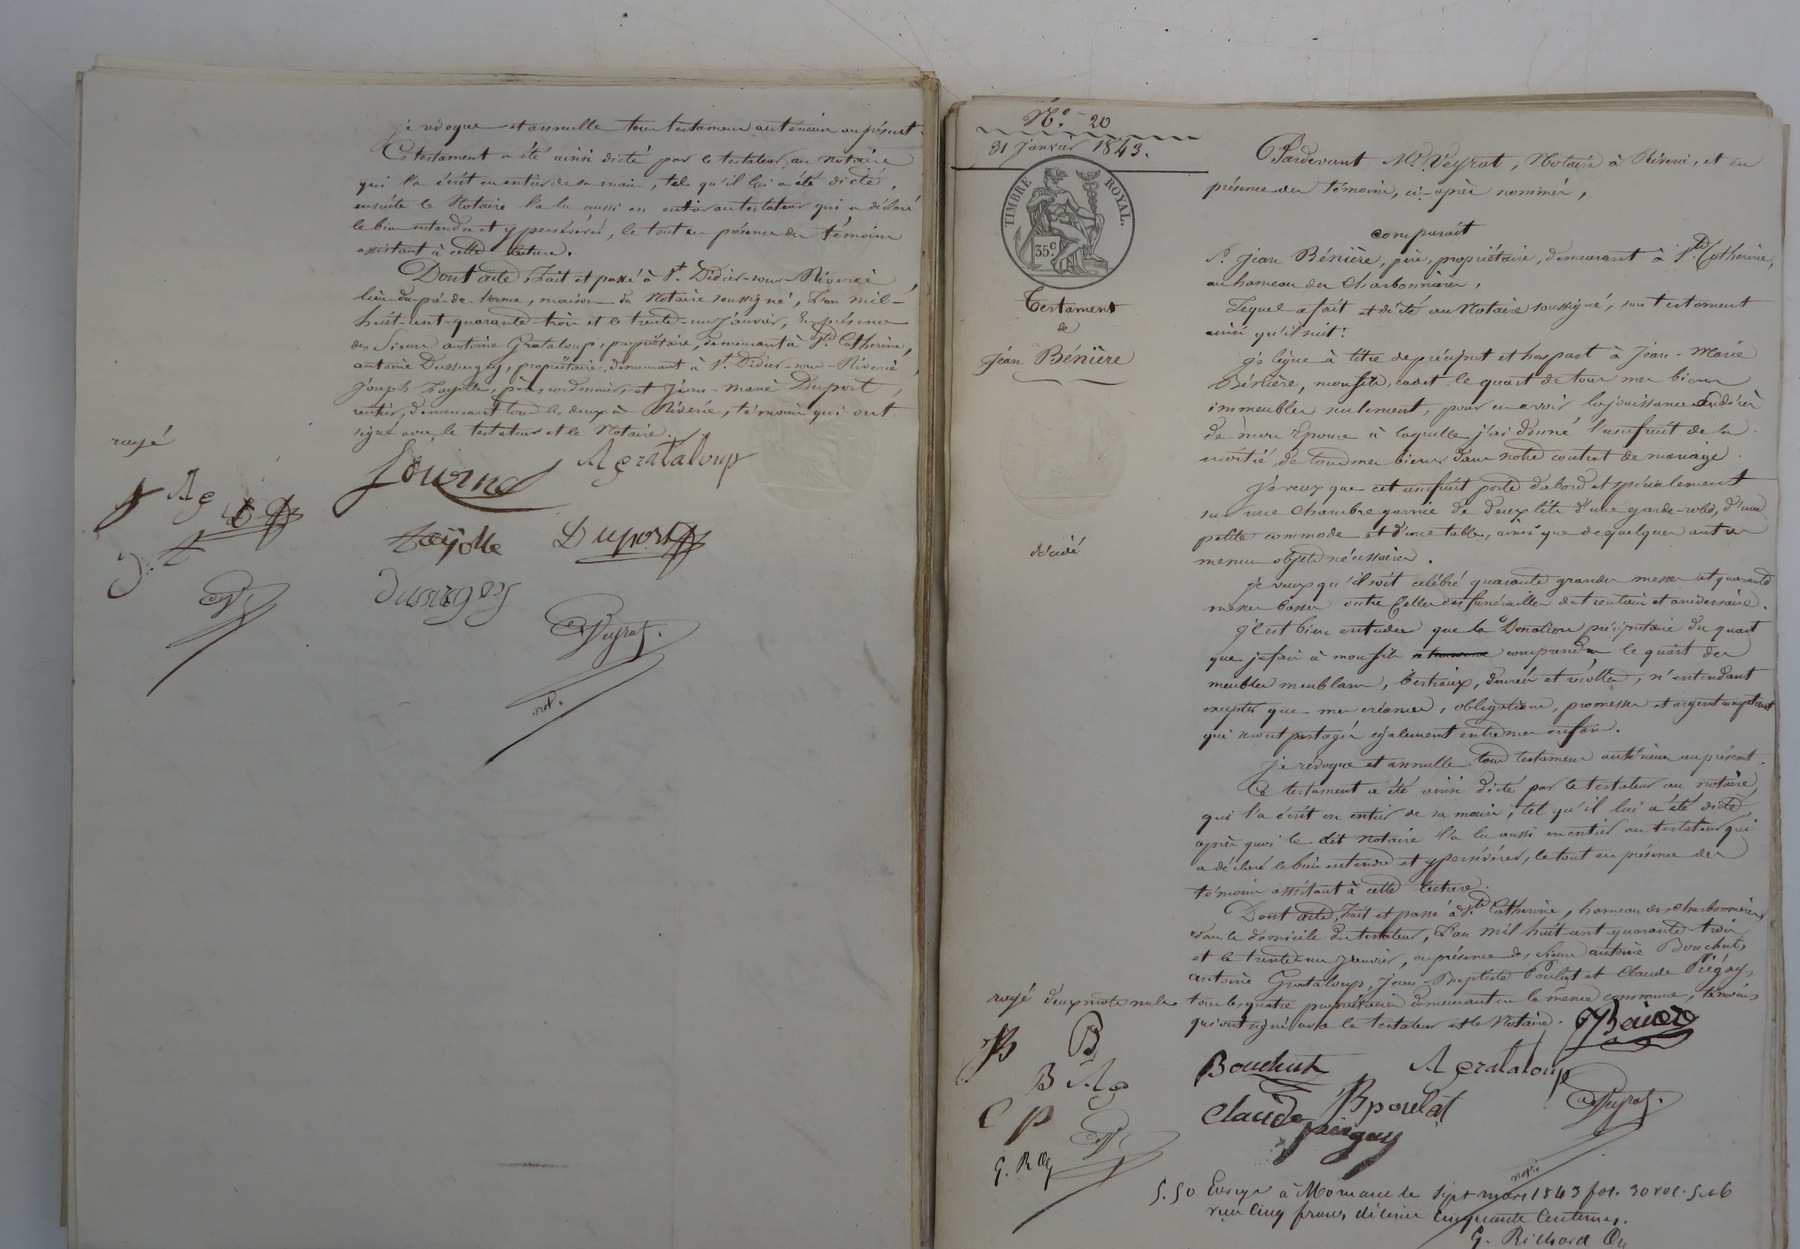 je révoque et annulle tous testamens antérieurs au présent.
Ce testament a été ainsi dicté par le testateur au Notaire
qui l'a écrit en entier de sa main, tel qu'il lui a été dicté,
ensuite le Notaire l'a lu aussi en entier au testateur qui a déclaré
le bien entendre et y persévérer, le tout en présence des témoins
assistant à cette lecture.
Dont acte, Fait et passé à St. Didier-sous-Riverie,
lieu du pré-de-, maison du Notaire soussigné, L'an mil-
huit-cent-quarante-trois et le trente-un Janvier, En présence
des Sieurs antoine Grataloup, propriétaire, demeurant à Ste Catherine,
antoine Dussurgey, propriétaire, demeurant à St. Didier-sous-Riverie,
Joseph Fayolle, père, cordonnier, et Jean-Marie Duport,
rentier, demeurant tous les deux à Riverie, témoins qui ont
signé avec le testateur et le Notaire.
rayé
A grataloup
Journd
Ag
fayolle Duport
dussurgey
Veyrat.
not.
No. 20
31 Janvier 1843.
TIMBRE ROYAL.
35c
Testament
de
Jean Bénière
décédé
Pardevant Me. Veyrat, Notaire à Riverie, et en
présence des témoins, ci-après nommés,
comparait
Sr. Jean Bénière, père, propriétaire, demeurant à Ste. Catherine,
au hameau des Charbonnières,
Lequel a fait et dicté au Notaire soussigné, son testament
ainsi qu'il suit:
Je lègue à titre de préciput et hors part à Jean-Marie
Bénière, mon fils, cadet le quart de tous mes biens
immeubles seulement, pour en avoir la jouissance au décès
de mon Epouse à laquelle j'ai donné l'usufruit de la
moitié, de tous mes biens dans notre contrat de mariage.
Je veux que cet usufruit porte d'abord et spécialement
sur une chambre garnie de deux lits d'une garde-robe, d'une
petite commode et d'une table, ainsi que de quelques autres
menus objets nécessaires.
je veux qu'il soit célébré quarante grandes messes et quarante
messes basses outre celles des funérailles de trentain et aniversaire.
Il est bien entendu que la Donation précipitaire du quart
que je fais à mon fils comprendra le quart des
meubles meublans, bestiaux, denrées et récoltes, n'entendant
excepter que mes créances, obligations, promesses et argent comptant
qui seront partagés également entre mes enfans.
je révoque et annulle tous testamens antérieurs au présent.
Ce testament a été ainsi dicté par le testateur au notaire,
qui l'a écrit en entier de sa main, tel qu'il lui a été dicté,
après quoi le dit Notaire l'a lu aussi en entier au testateur qui
a déclaré le bien entendre et y persévérer, le tout en présence des
témoins assistant à cette lecture.
Dont acte, Fait et passé à Ste Catherine, hameau des Charbonnières,
dans le domicile du testateur, L'an mil huit cent quarante trois
et le trente un Janvier, en présence des Sieurs antoine Bouchut,
antoine Grataloup, Jean-Baptiste Poulat et Claude Piégay,
tous les quatre propriétaires demeurant en la même commune, témoins
qui ont signé avec le testateur et le Notaire.
rayé deux mots nuls
JB B
B Ag
C P
G. R
Bénière
Bouchut A grataloup
Claude piegay B poulat
Veyrat.
not.
5.50 Enregé à Mornant le Sept mars 1843 fol. 30 vol. 5 et 6
reçu cinq francs, décime cinquante centimes.
G. Richard